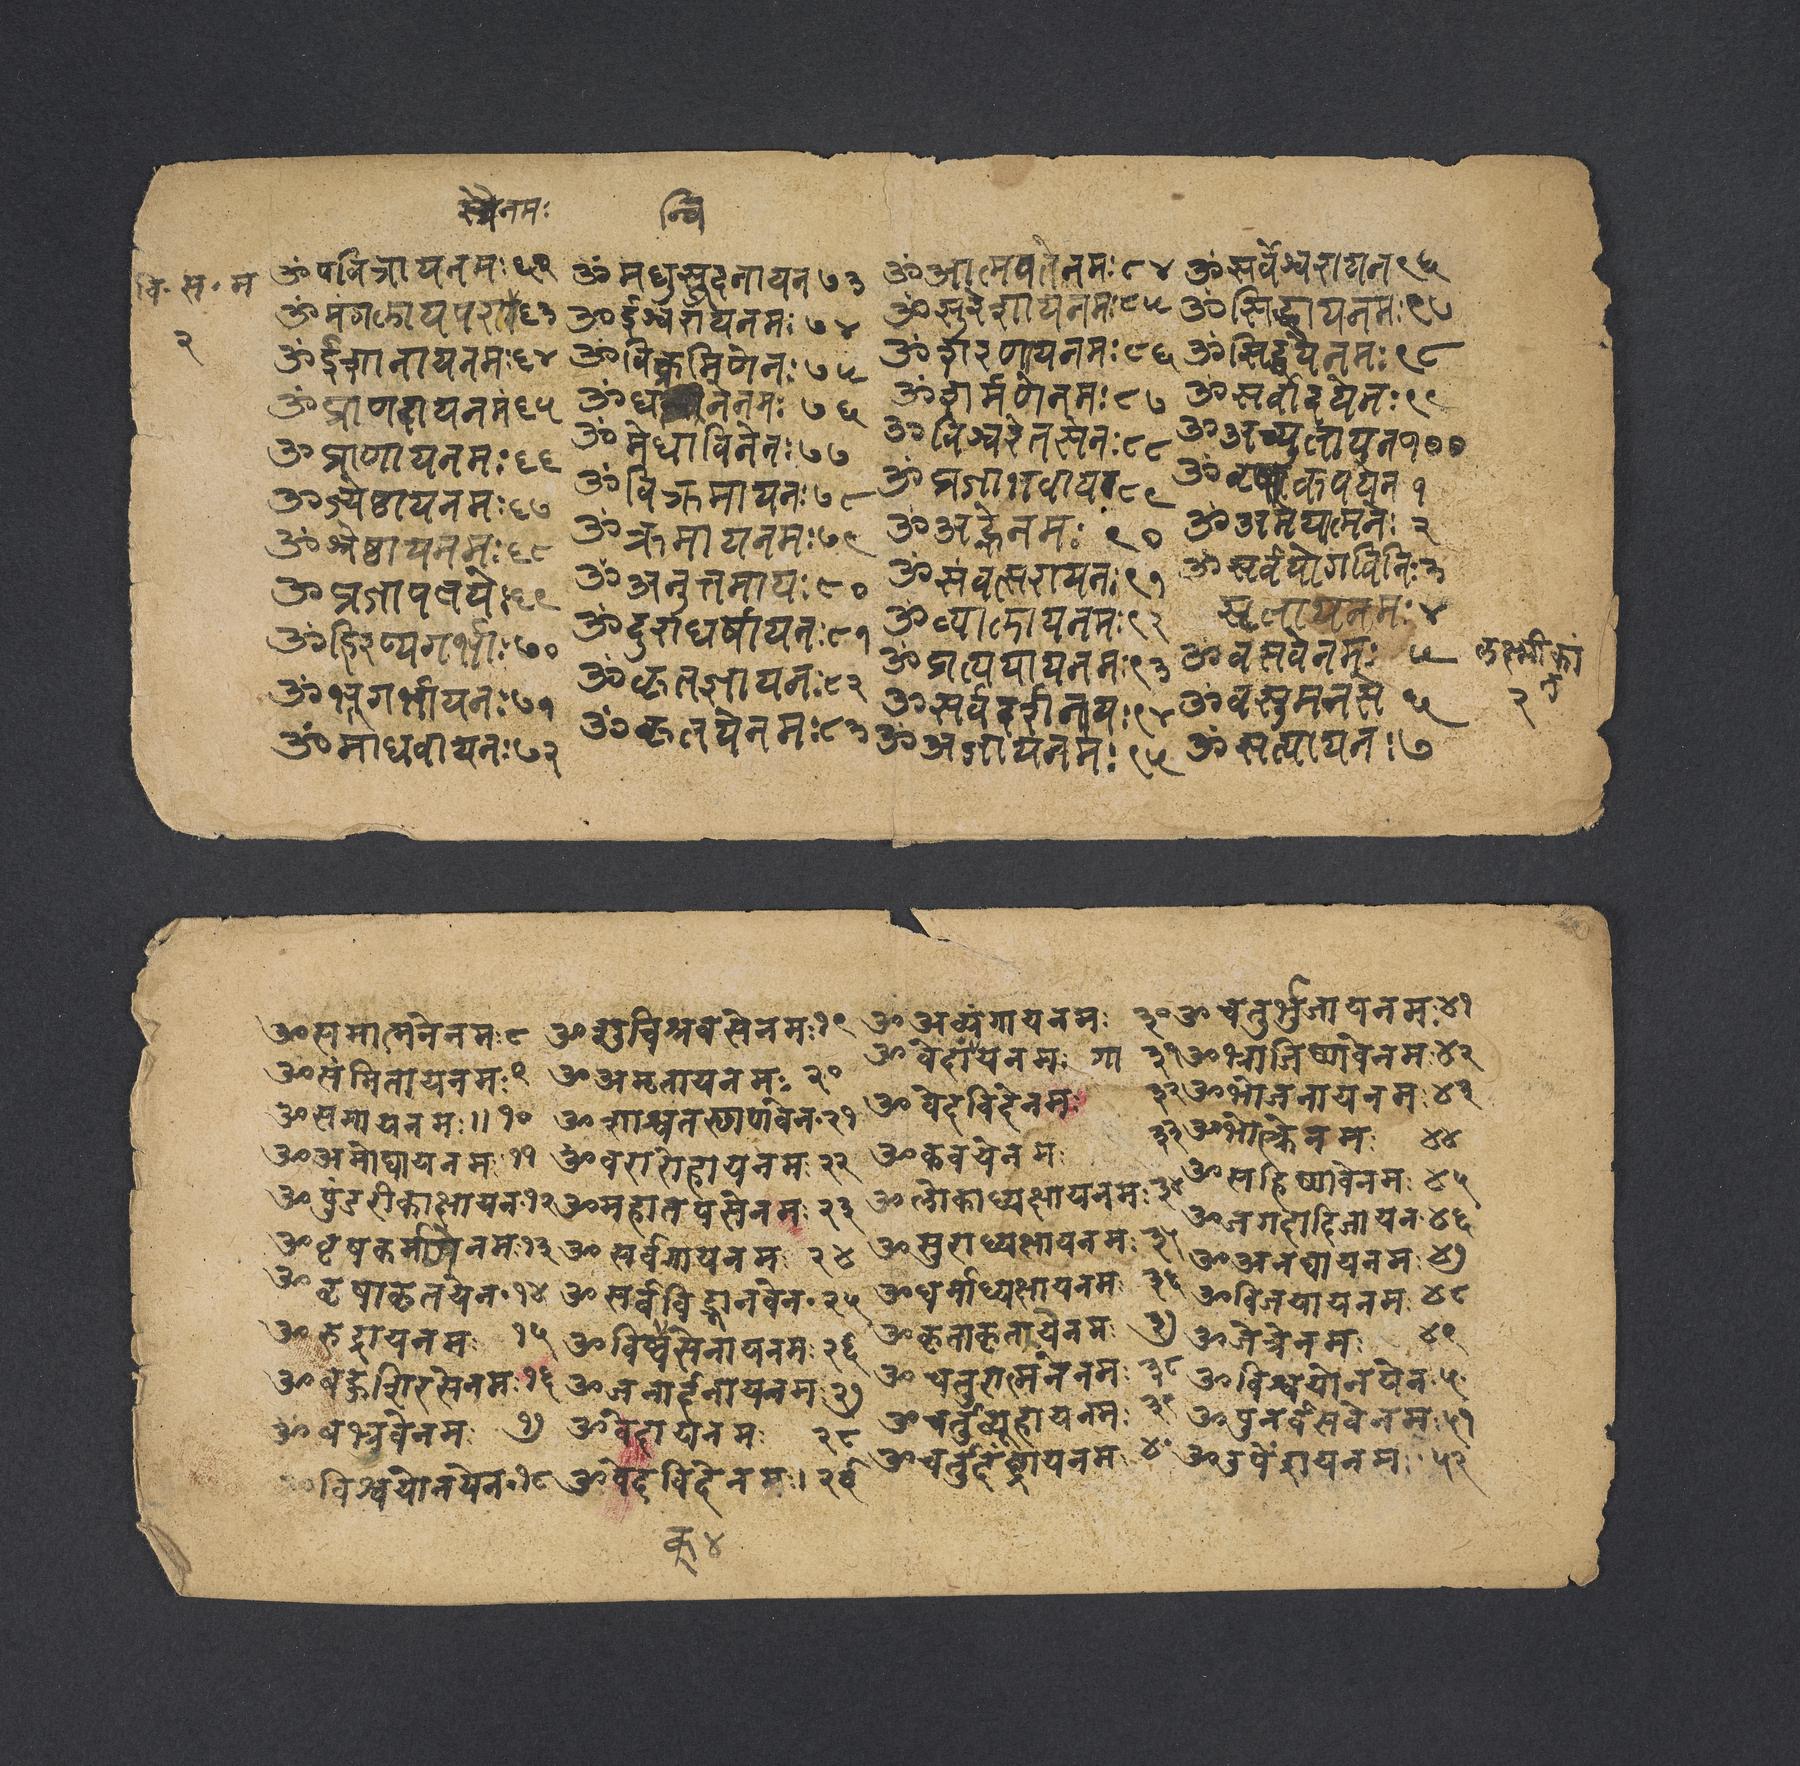 स्यैनमः
न्वि
वि॰स॰म
२
ॐपवित्रायनमः६२
ॐमंगलायपरा६३
ॐईशानायनमः६४
ॐप्राणदायनमः६५
ॐप्राणायनमः६६
ॐज्येष्ठायनमः६७
ॐश्रेष्ठायनमः६८
ॐप्रजापतये६९
ॐहिरण्यगर्भाः७०
ॐभूगर्भायनः७१
ॐमाधवायनः७२
ॐमधुसूदनायन७३
ॐईश्वरायनमः७४
ॐविक्रमिणेनः७५
ॐध नेनमः ७६
ॐमेधाविनेनः७७
ॐविक्रमायनः७८
ॐक्रमायनमः७९
ॐअनुत्तमायः८०
ॐदुराधर्षायनः८१
ॐकृतज्ञायनः८२
ॐकृतयेनमः८३
ॐआत्मवतेनमः८४
ॐसुरेशायनमः८५
ॐशरणायनमः८६
ॐशर्मणेनमः८७
ॐविश्वरेतसेनः८८
ॐप्रजाभवाय८९
ॐअह्नेनमः ९०
ॐसंवत्सरायनः९१
ॐव्यालायनमः९२
ॐप्रत्ययायनमः९३
ॐसर्वदर्शनायः९४
ॐअजायनमः९५
ॐसर्वेश्वरायन९६
ॐसिद्धायनमः९७
ॐसिद्धयेनमः९८
ॐसर्वादयेनः९९
ॐअच्युतायन१००
ॐवृषाकपयेन १
ॐअमेयात्मनेः २
ॐसर्वयोगविनिः३
सृतायनमः४
ॐवसवेनमः ५
ॐवसुमनसे ६
ॐसत्यायनः७
लक्ष्मीकां
२ त
ॐसमात्मनेनमः८
ॐसंमितायनमः९
ॐसमायनमः॥१०
ॐअमोघायनमः११
ॐपुंडरीकाक्षायनः१२
ॐवृषकर्मणेनमः१३
ॐवृषाकृतयेन॰१४
ॐरुद्रायनमः १५
ॐबहुशिरसेनमः१६
ॐबभ्रुवेनमः १७
ॐविश्वयोनयेन॰१८
ॐशुचिश्रवसेनमः१९
ॐअमृतायनमः २०
ॐशाश्वतस्थाणवेन॰२१
ॐवरारोहायनमः२२
ॐमहातपसेनमः२३
ॐसर्वगायनमः २४
ॐसर्वविद्भानवेन॰२५
ॐविष्वक्सेनायनमः२६
ॐजनार्दनायनमः२७
ॐवेदायनमः २८
ॐवेदविदेनमः।२९
ॐअव्यंगायनमः ३०
ॐवेदांयनमः गा ३१
ॐवेदविदेनमः ३२
ॐकवयेनमः ३३
ॐलोकाध्यक्षायनमः३४
ॐसुराध्यक्षायनमः३५
ॐधर्माध्यक्षायनमः ३६
ॐकृताकृतायनमः ३७
ॐचतुरात्मनेनमः ३८
ॐचतुर्व्यूहायनमः ३९
ॐचतुर्दंष्ट्रायनमः ४०
ॐचतुर्भुजायनमः४१
ॐभ्राजिष्णवेनमः४२
ॐभोजनायनमः४३
ॐभोक्त्रेनमः ४४
ॐसहिष्णवेनमः ४५
ॐजगदादिजायनः४६
ॐअनघायनमः ४७
ॐविजयायनमः ४८
ॐजेत्रेनमः ४९
ॐविश्वयोनयेन॰५॰
ॐपुनर्वसवेनमः५१
ॐउपेंद्रायनमः ५२
कृ४